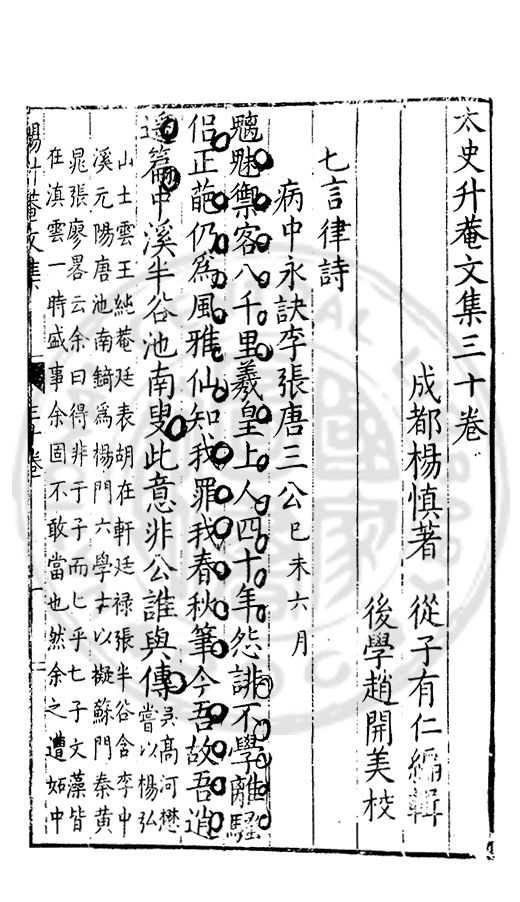 太史升菴文集三十卷
成都楊慎著 從子有仁編輯
後學趙開美校
七言律詩
病中永訣李張唐三公己未六月
魑魅禦客八千里羲皇上人四十年怨誹不學離騷
侶正葩仍為風雅仙知我罪我春秋筆今吾故吾逍
遙篇中溪半谷池南叟此意非公誰與傳
吳高河懋嘗以楊弘
山士雲王純菴廷表胡在軒廷祿張半谷含李中
溪元陽唐池南錡為楊門六學士以擬蘇門秦黃
晁張廖畧云余曰得非于子而七乎七子文藻皆
在滇雲一時盛事余固不敢當也然余之遭妬中